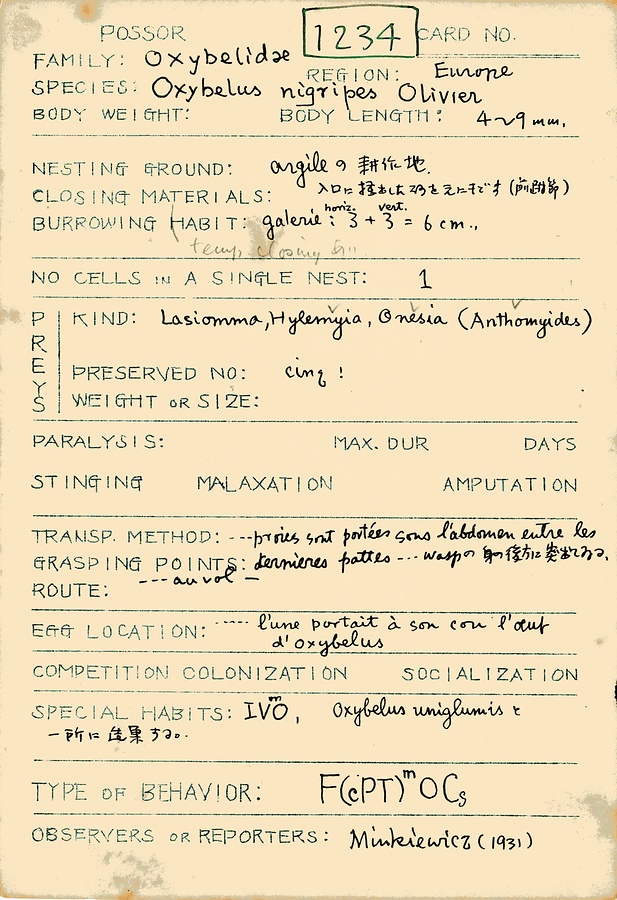 POSSOR 1234 CARD NO.
FAMILY: Oxybelidæ
REGION: Europe
SPECIES: Oxybelus nigripes Olivier
BODY WEIGHT: BODY LENGTH: 4~9 mm.
NESTING GROUND: argile の 耕作地.
CLOSING MATERIALS: 入口に
BURROWING HABIT: galerie: horiz. 3 + vert. 3 = 6 cm.,
temp. closing
NO CELLS IN A SINGLE NEST: 1
PREYS
KIND: Lasiomma, Hylemyia, Onesia (Anthomyides)
PRESERVED NO: cinq !
WEIGHT OR SIZE:
PARALYSIS: MAX. DUR DAYS
STINGING MALAXATION AMPUTATION
TRANSP. METHOD: ---proies sont portées sous l'abdomen entre les
GRASPING POINTS: dernieres pattes --- waspの 身の後方に突出てゐる.
ROUTE: ---au vol —
EGG LOCATION: ----- l'une portait à son cou l'œuf
d'oxybelus
COMPETITION COLONIZATION SOCIALIZATION
SPECIAL HABITS: IVO^m, Oxybelus uniglumis と
一所に 造巣する.
TYPE OF BEHAVIOR: F(cPT)^m OCs
OBSERVERS OR REPORTERS: Minkiewicz (1931)